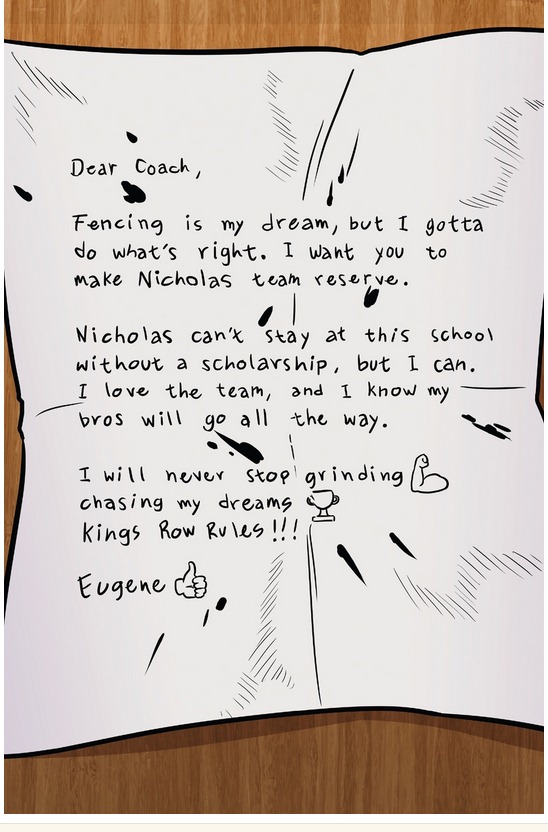 Dear Coach,
Fencing is my dream, but I gotta
do what's right. I want you to
make Nicholas team reserve.
Nicholas can't stay at this school
without a scholarship, but I can.
I love the team, and I know my
bros will go all the way.
I will never stop grinding
chasing my dreams
Kings Row Rules!!!
Eugene